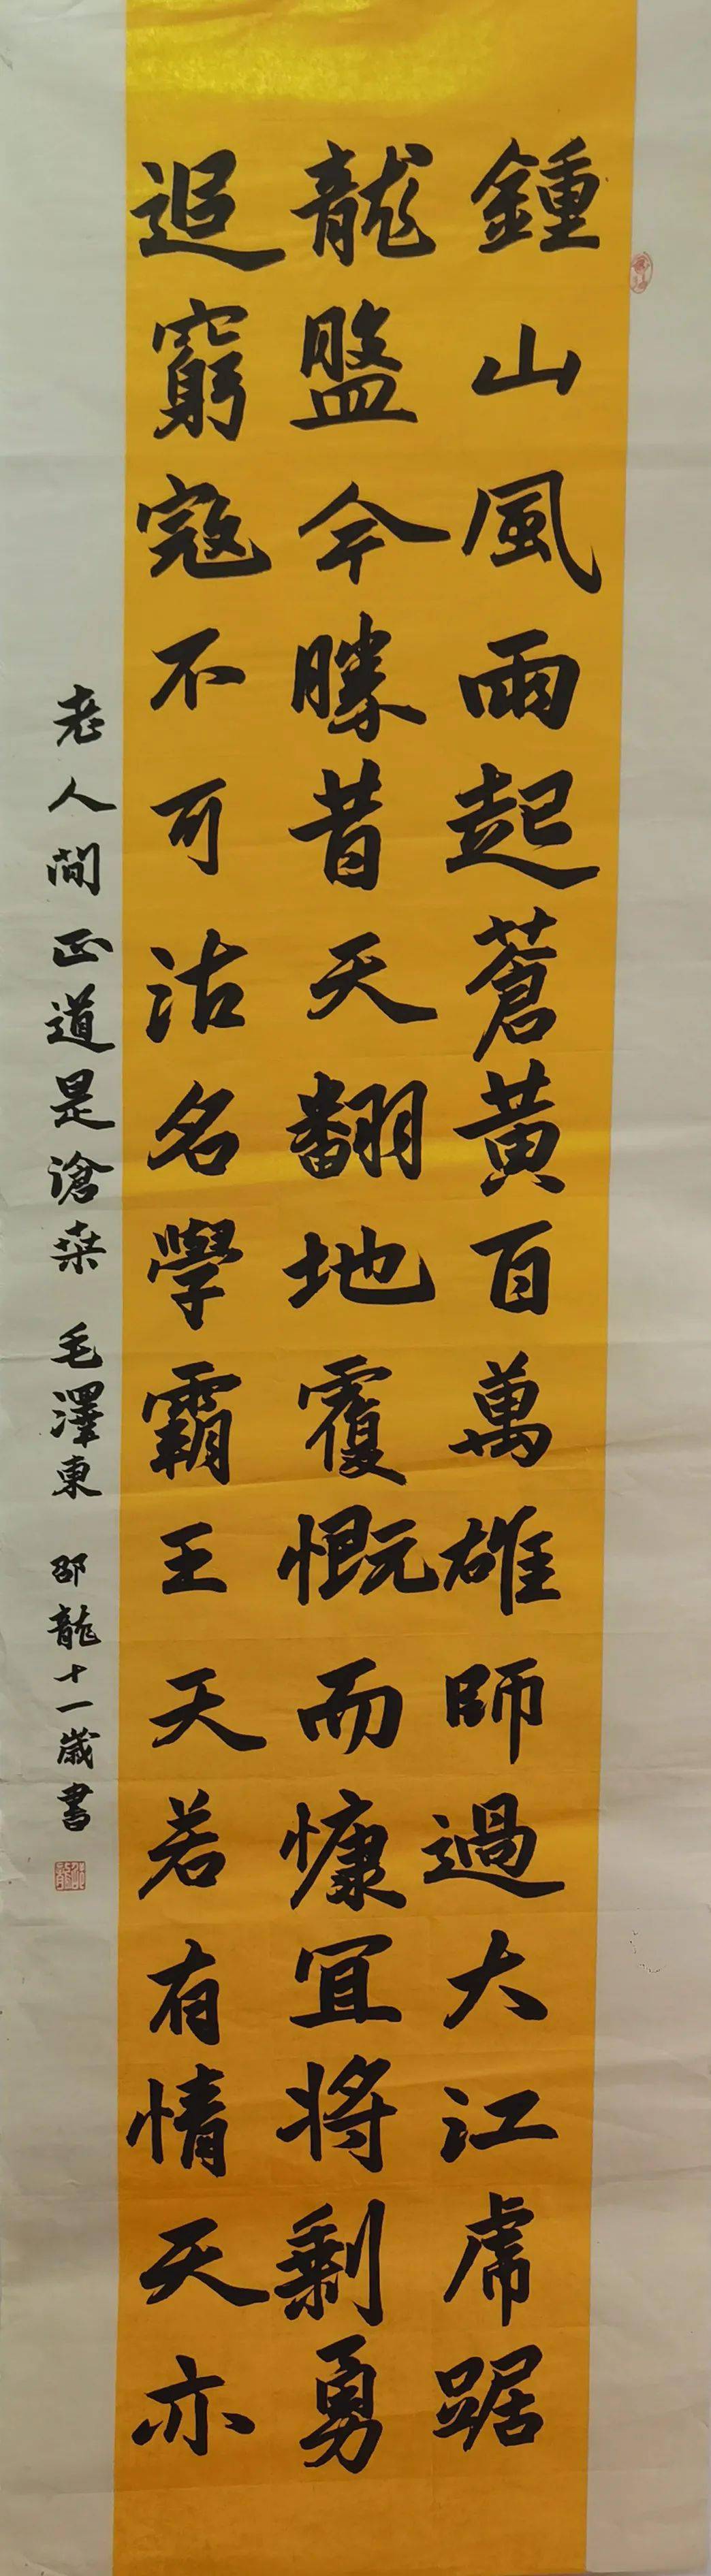 鍾山風雨起蒼黃百萬雄師過大江虎踞
龍盤今勝昔天翻地覆慨而慷宜將剩勇
追窮寇不可沽名學霸王天若有情天亦
老人間正道是滄桑 毛澤東 邵龍十一歲書
邵龍